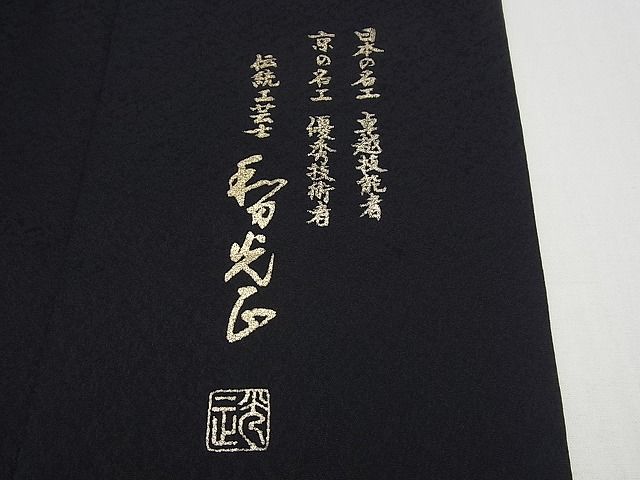 日本の名工 卓越技能者
京の名工 優秀技術者
伝統工芸士
光正